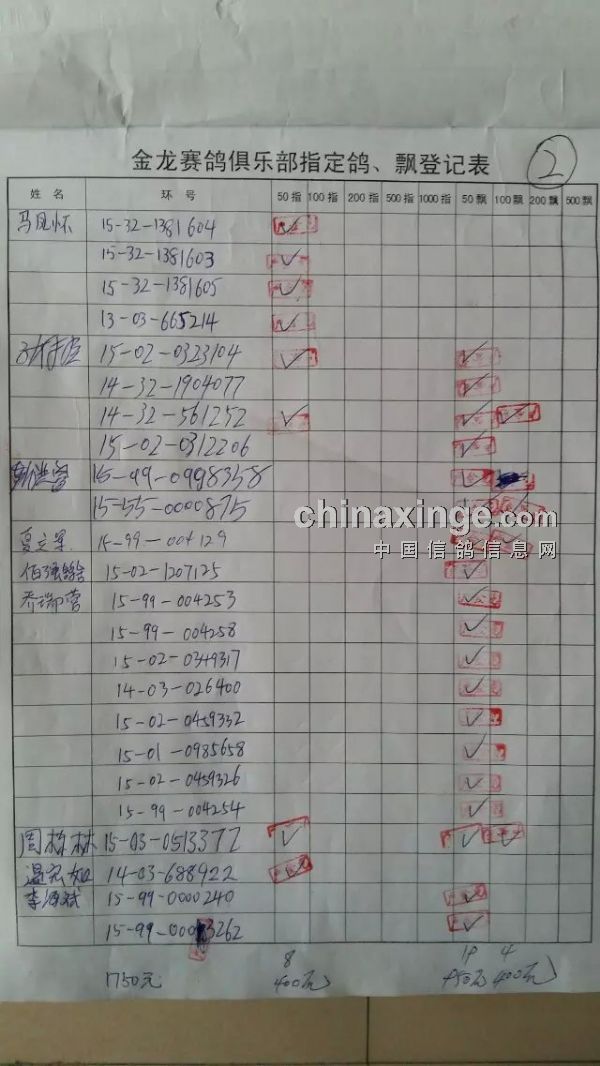 金龙赛鸽俱乐部指定鸽、飘登记表
2
姓 名 环 号 50指 100指 200指 500指 1000指 50飘 100飘 200飘 500飘
马凤怀 15-32-1381604 ✓
15-32-1381603 ✓
15-32-1381605 ✓
13-03-665214 ✓
15-02-0323104 ✓ ✓
14-32-1904077 ✓
14-32-561252 ✓ ✓ ✓
15-02-0312206 ✓
15-99-0998358 ✓
15-55-0000875 ✓ ✓
chinaxinge.com
夏立军 15-99-004129 ✓ ✓
中国信鸽信息网
15-02-1207125 ✓
乔瑞营 15-99-004253 ✓
15-99-004258 ✓
15-02-0349317 ✓
14-03-026400 ✓
15-02-0459332 ✓
15-01-0985658 ✓
15-02-0459326 ✓
15-99-004254 ✓
周栋林 15-03-0513377 ✓ ✓ ✓
14-03-688922 ✓
李源斌 15-99-0000240 ✓
15-99-000 3262 ✓
8 19 4
1750元 400元 950元 400元